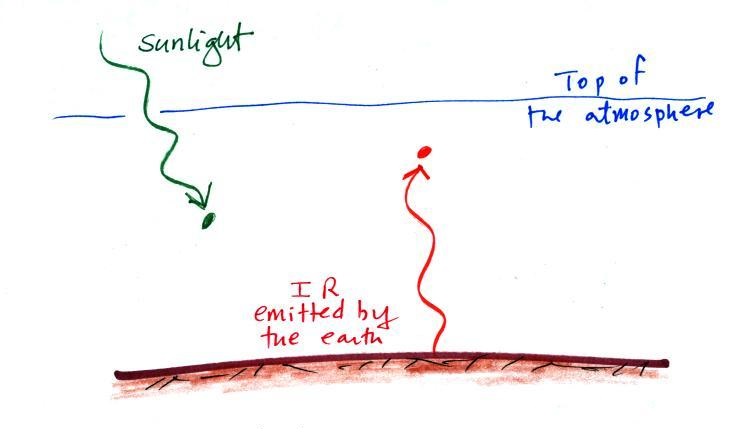 sunlight
Top of
the atmosphere
IR
emitted by
the earth